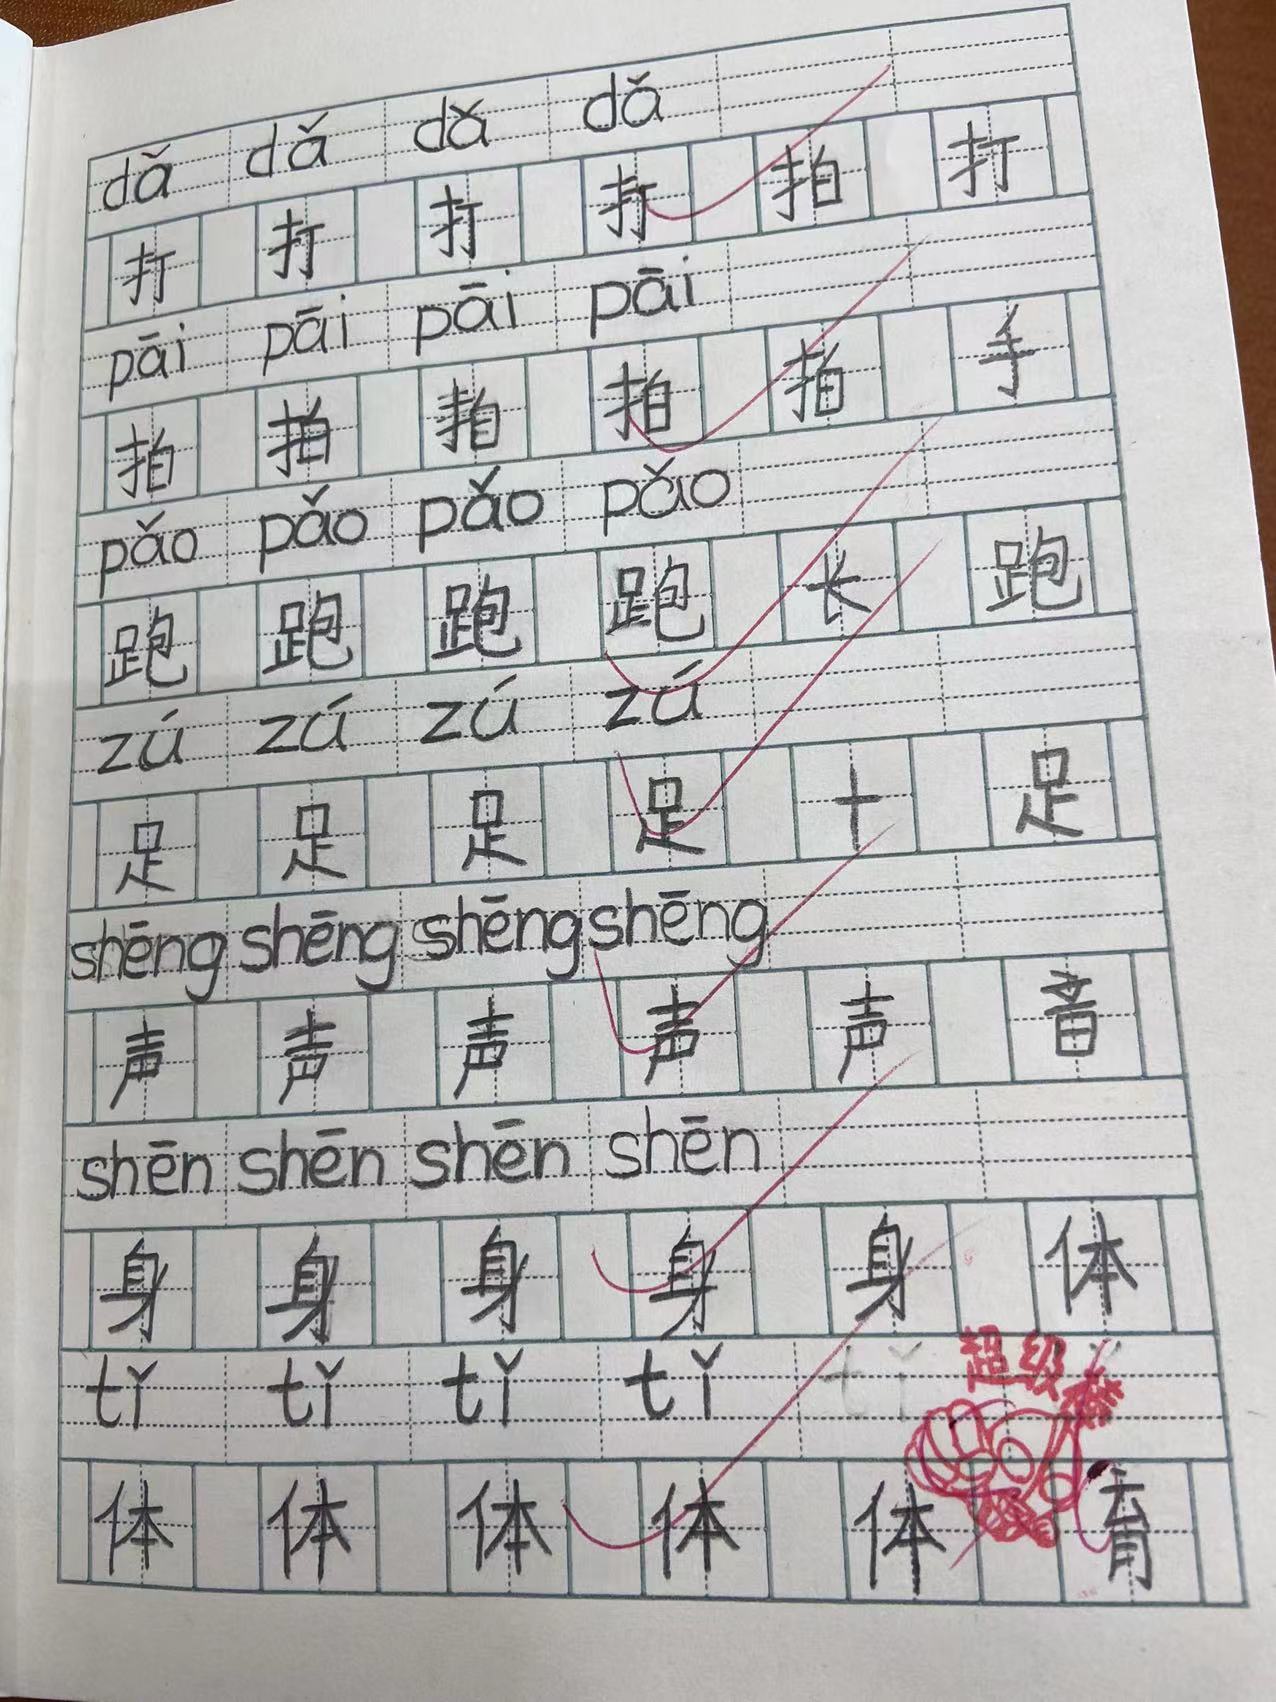 dǎ dǎ dǎ dǎ
打 打 打 打 拍 打
pāi pāi pāi pāi
拍 拍 拍 拍 拍 手
pǎo pǎo pǎo pǎo
跑 跑 跑 跑 长 跑
zú zú zú zú
足 足 足 足 十 足
shēng shēng shēng shēng
声 声 声 声 声 音
shēn shēn shēn shēn
身 身 身 身 身 体
tǐ tǐ tǐ tǐ tǐ
超级棒
体 体 体 体 体 育